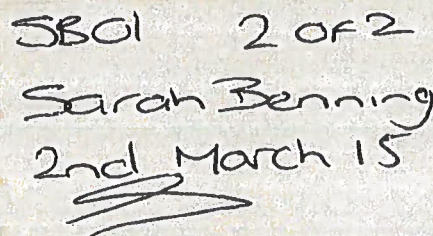 SB01 2 OF 2
Sarah Benning
2nd March 15